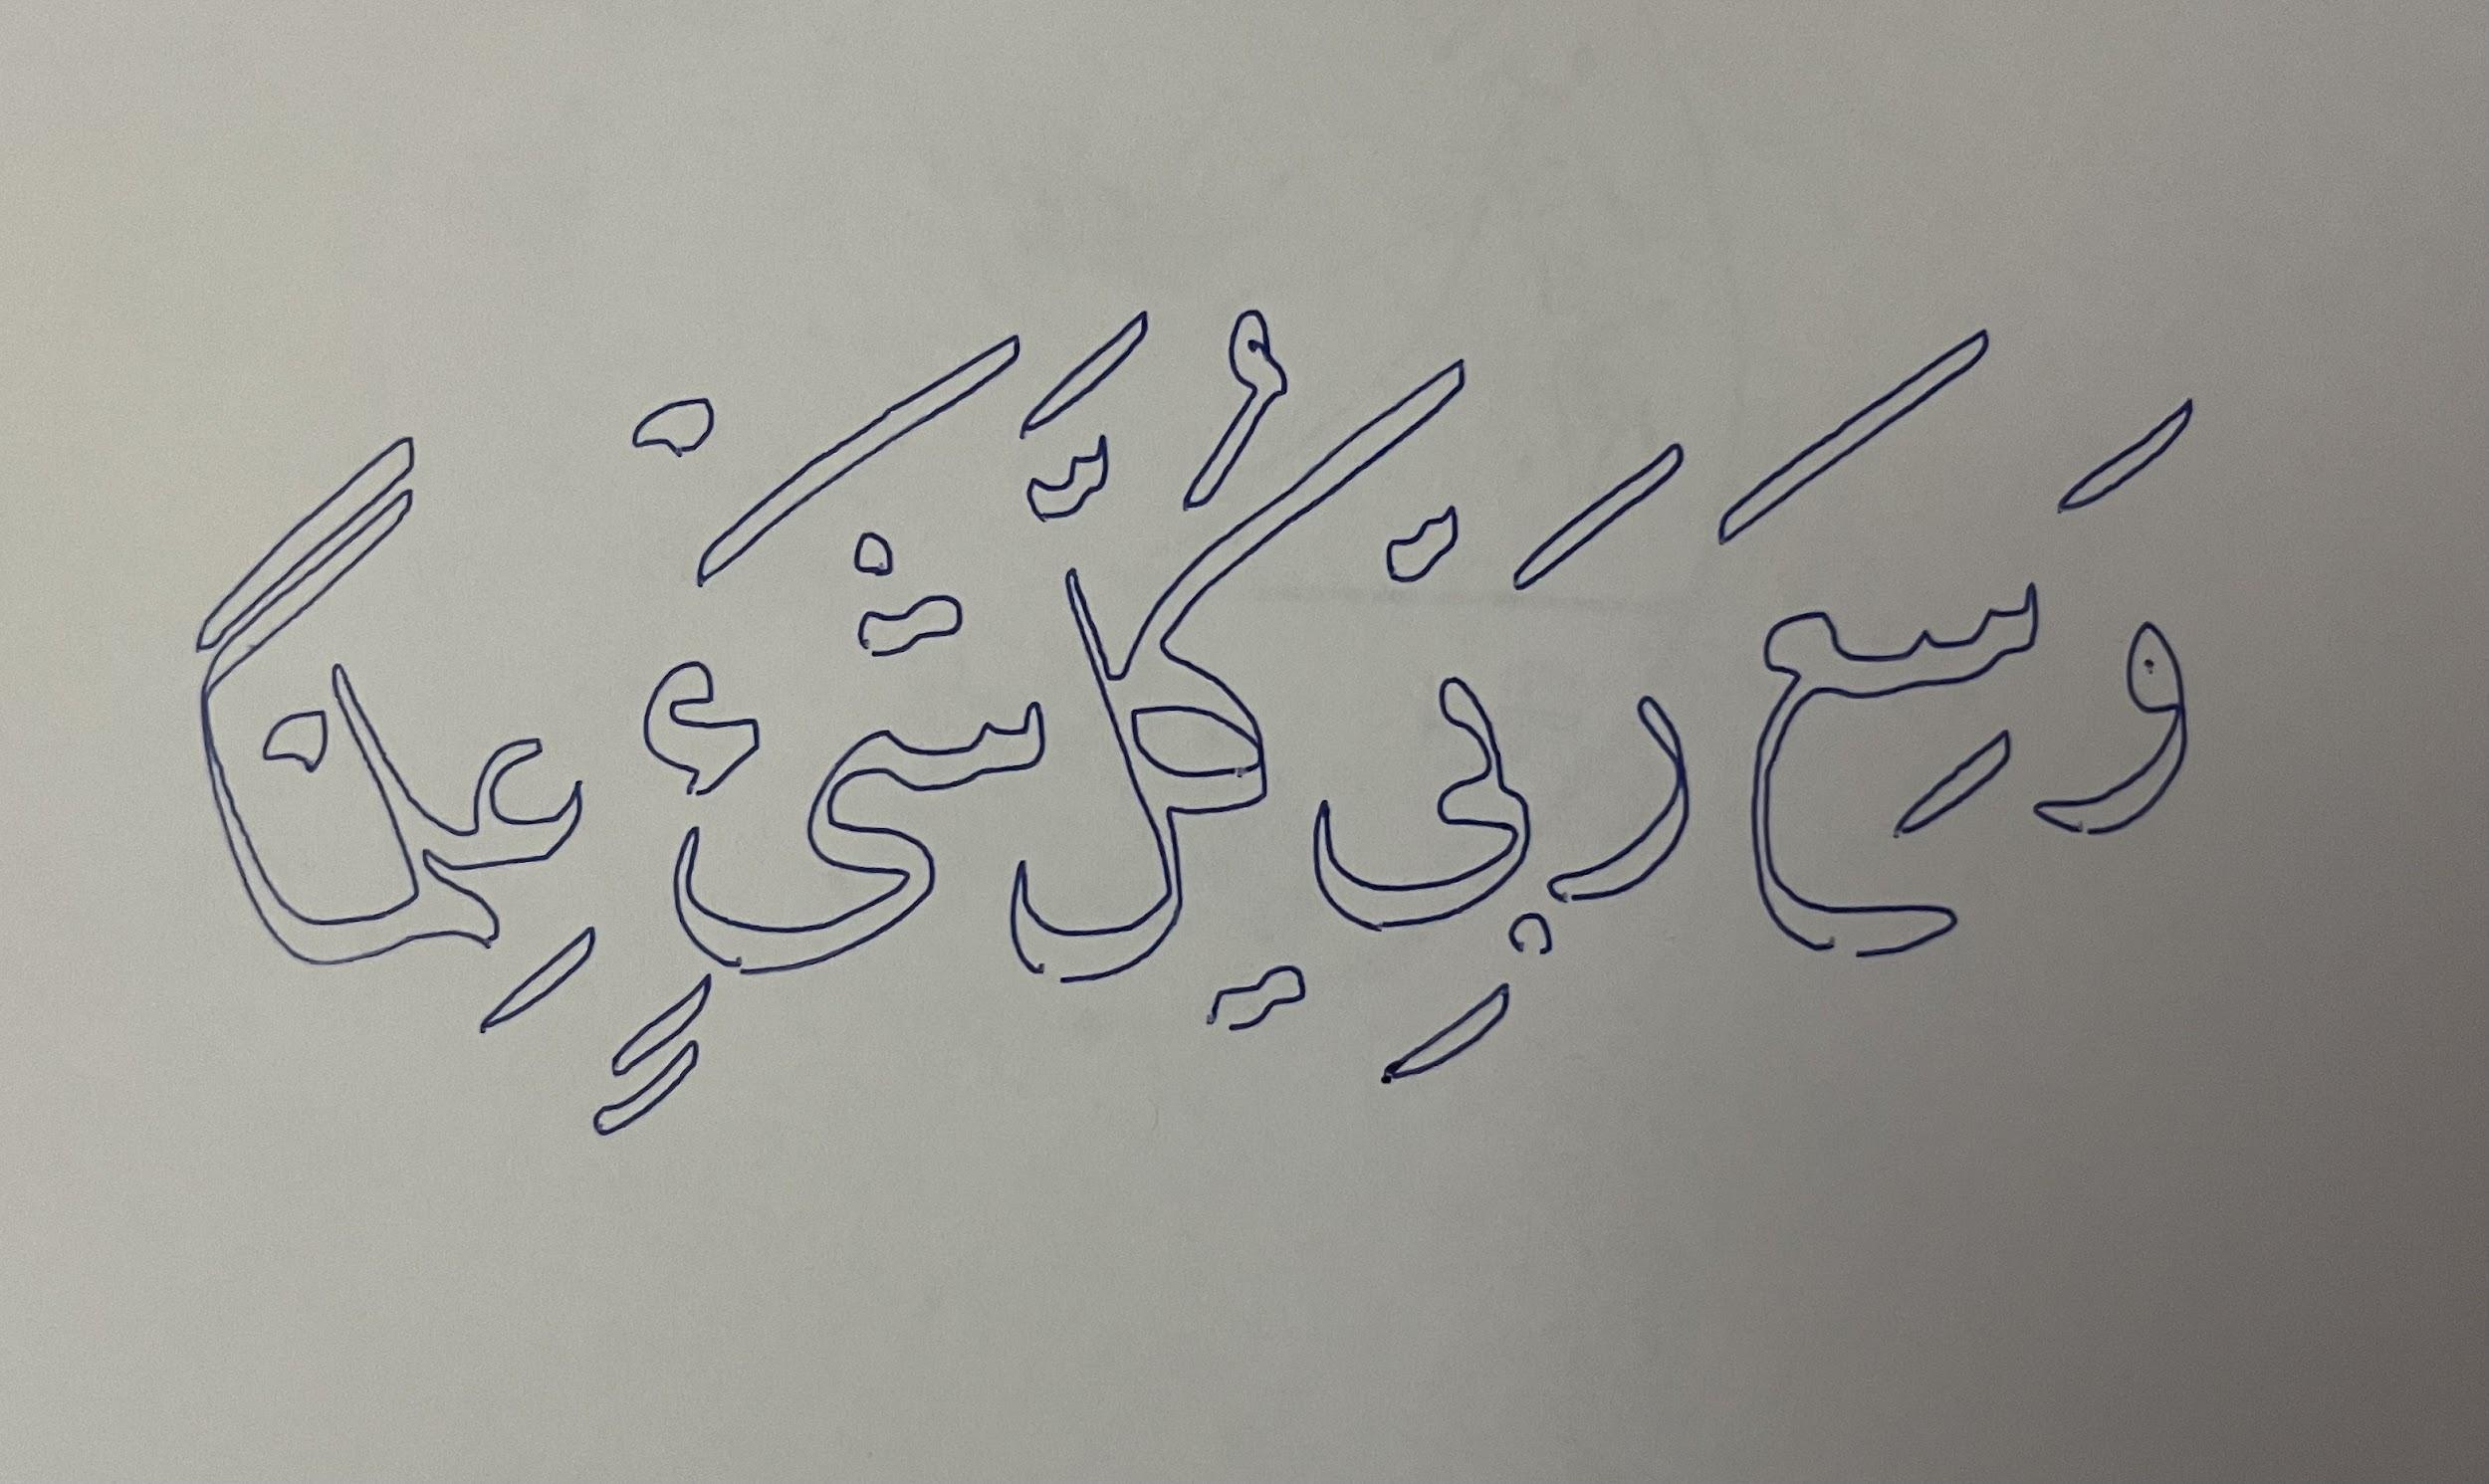 وَسِعَ رَبِّي كُلَّ شَيْءٍ عِلْمًا